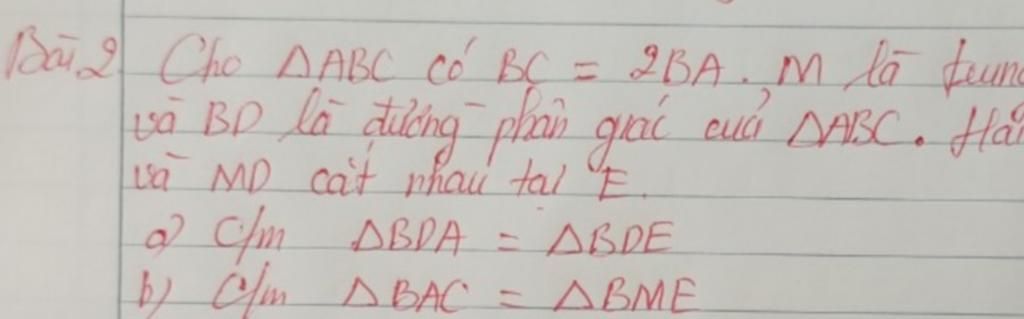 Bài 2 Cho ΔABC có BC = 2BA. M là trung
và BD là đường phân giác của ΔABC. Hai
và MD cắt nhau tại E.
a) C/m ΔBDA = ΔBDE
b) C/m ΔBAC = ΔBME